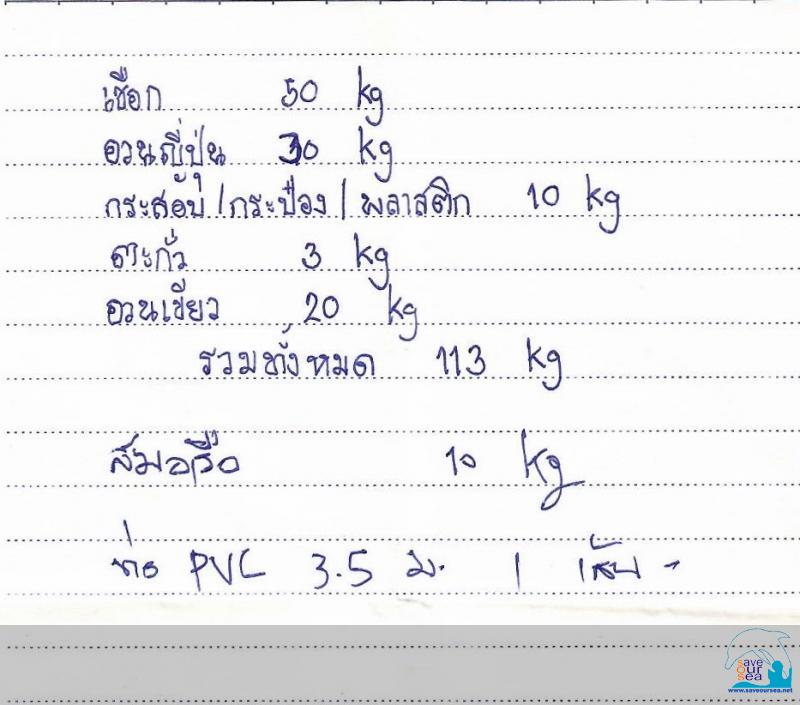 เชือก 50 kg
อวนญี่ปุ่น 30 kg
กระสอบ/กระป๋อง/พลาสติก 10 kg
ตะกั่ว 3 kg
อวนเขียว 20 kg
รวมทั้งหมด 113 kg
สมอเรือ 10 kg
ท่อ PVC 3.5 ม. 1 เส้น -
save
our
sea
www.saveoursea.net